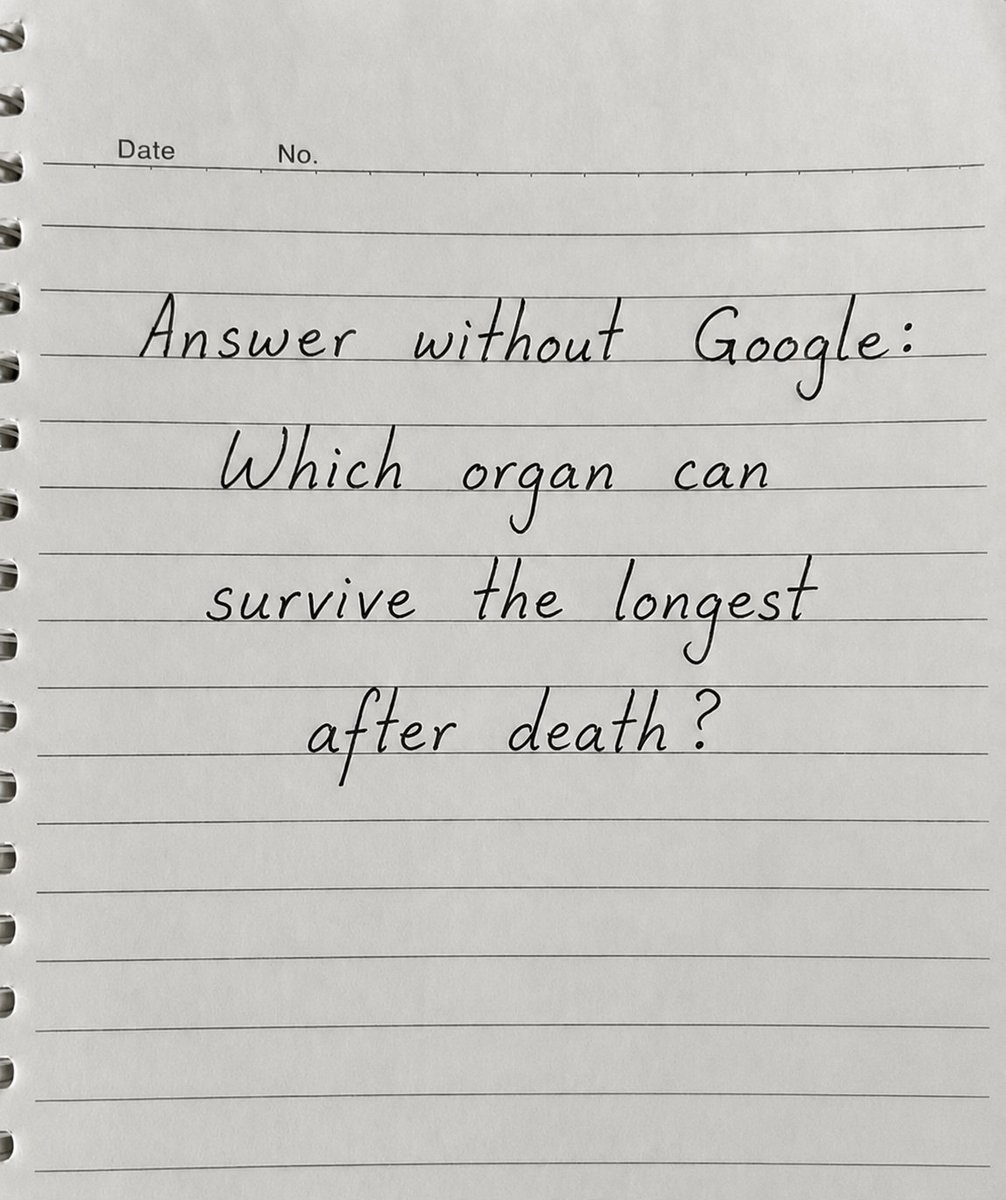 Date No.
Answer without Google:
Which organ can
survive the longest
after death?